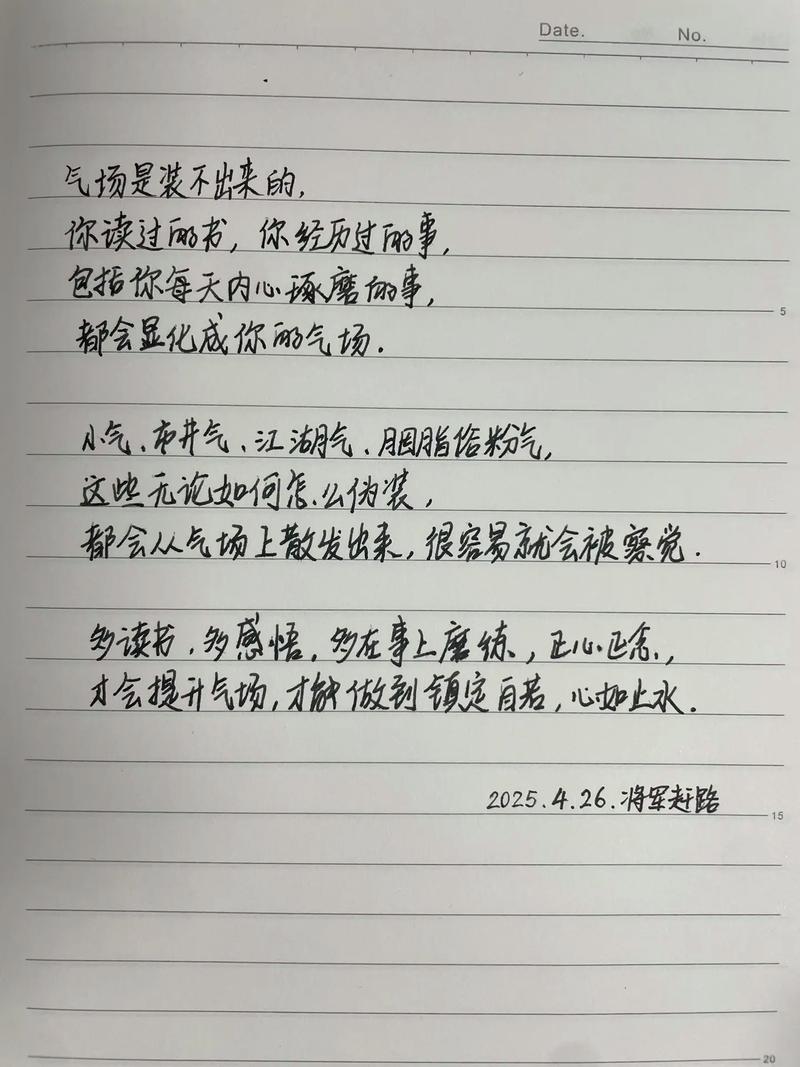 Date.
No.
气场是装不出来的,
你读过的书,你经历过的事,
包括你每天内心琢磨的事,
都会显化成你的气场.
5
小气、市井气、江湖气、胭脂俗粉气,
这些无论如何怎么伪装,
都会从气场上散发出来,很容易就会被察觉.
10
多读书,多感悟,多在事上磨练,正心正念,
才会提升气场,才能做到镇定自若,心如止水.
2025.4.26.将军赶路
15
20